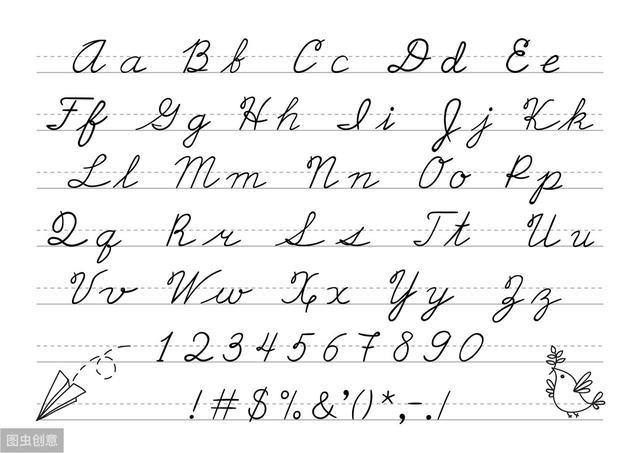 A a B b C c D d E e
F f G g H h I i J j K k
L l M m N n O o P p
Q q R r S s T t U u
V v W w X x Y y Z z
1 2 3 4 5 6 7 8 9 0
! # $ % & ' ( ) * , - . /
图虫创意